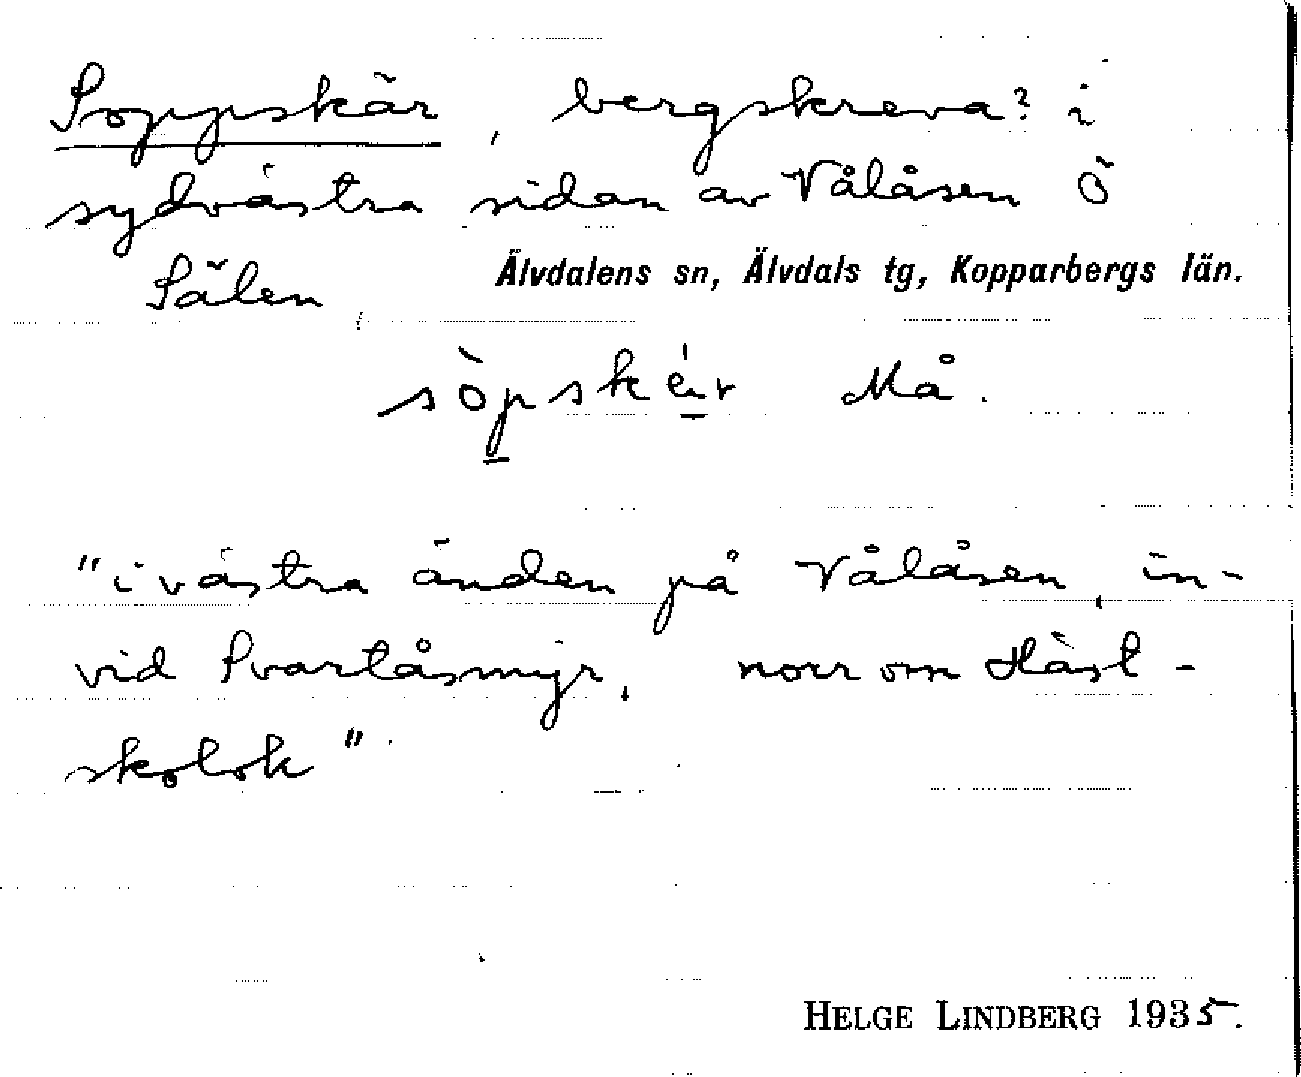 Soppskär, bergskreva? i
sydvästra sidan av Vålåsen Ö
Sälen
Älvdalens sn, Älvdals tg, Kopparbergs län.
Må.
"i västra änden på Vålåsen, in-
vid Svartåsmyr, norr om Häst-
skolok"
HELGE LINDBERG 1935.